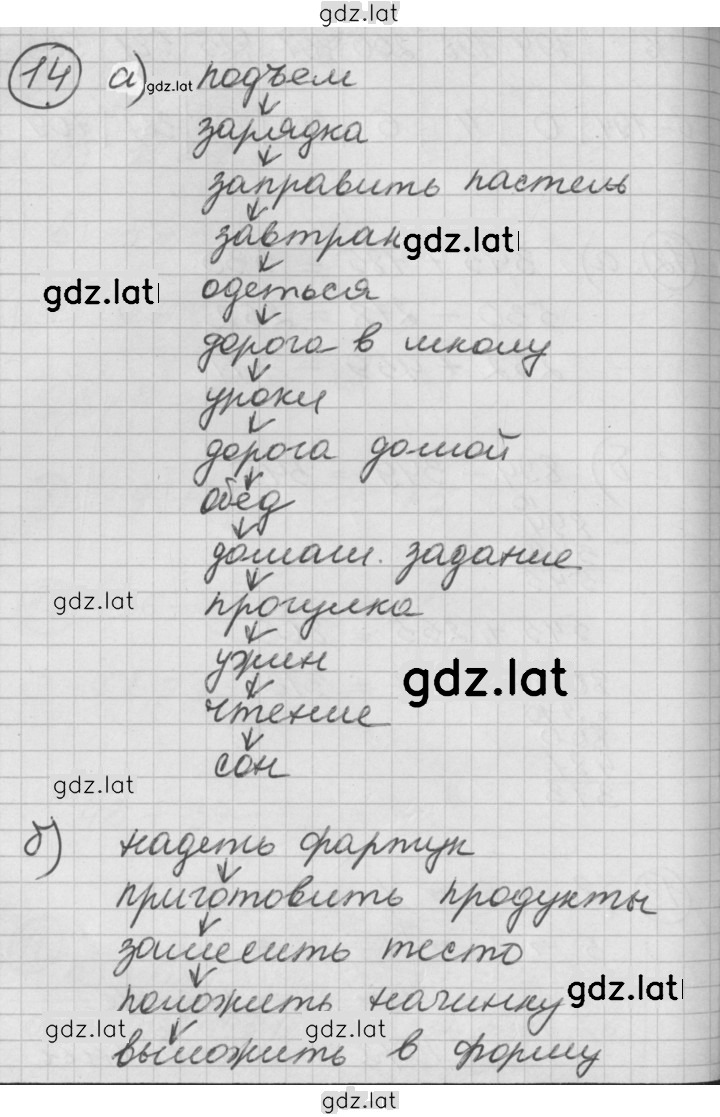 gdz.lat
14 а) gdz.lat подъем
зарядка
заправить пастель
завтрак gdz.lat
gdz.lat одеться
дорога в школу
уроки
дорога домой
обед
домаш. задание
gdz.lat прогулка
ужин
gdz.lat
чтение
сон
gdz.lat
б) надеть фартук
приготовить продукты
замесить тесто
положить начинку gdz.lat
gdz.lat gdz.lat
выложить в форму
gdz.lat